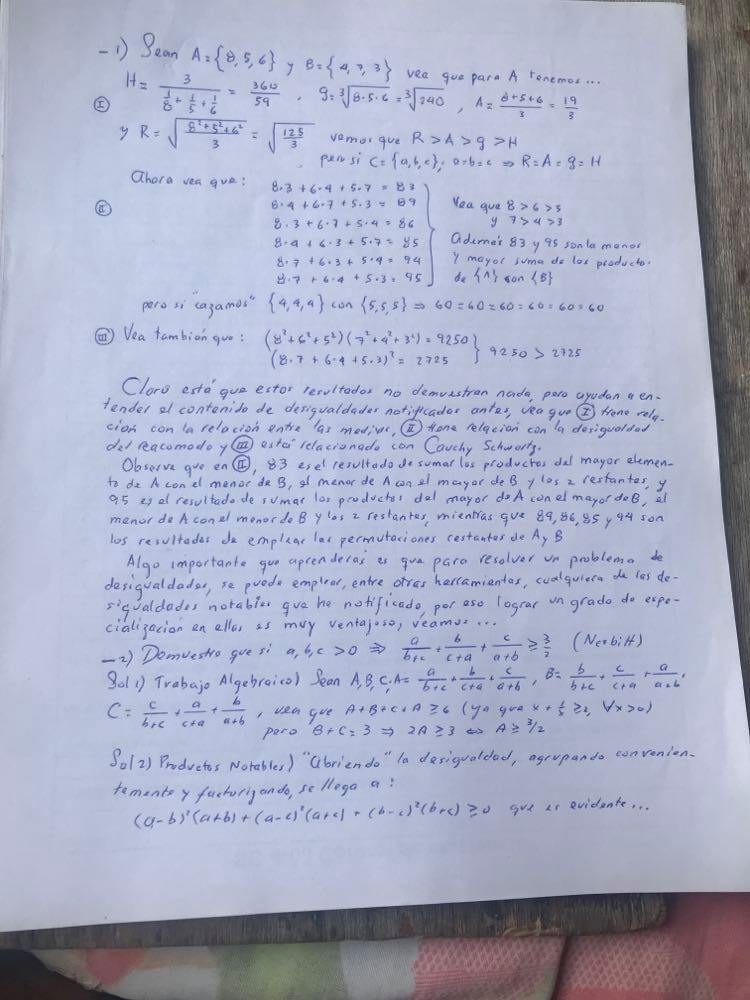 -1) Sean A={8,5,6} y B={4,7,3} vea que para A tenemos...
Ⓘ H= 3/(1/8+1/5+1/6) = 360/59 , g=∛(8·5·6)=∛240 , A= (8+5+6)/3 = 19/3
y R= √((8²+5²+6²)/3) = √(125/3) vemos que R>A>g>H
pero si C={a,b,c}; a=b=c ⇒ R=A=g=H
Ahora vea que:
Ⓘⓘ 8·3+6·4+5·7=83
8·4+6·7+5·3=89
8·3+6·7+5·4=86
8·4+6·3+5·7=85
8·7+6·3+5·4=94
8·7+6·4+5·3=95
Vea que 8>6>5
y 7>4>3
Además 83 y 95 son la menor
y mayor suma de los producto.
de {A} con {B}
pero si "cazamos" {4,4,4} con {5,5,5} ⇒ 60=60=60=60=60=60
(III) Vea también que: (8²+6²+5²)(7²+4²+3²)=9250
(8·7+6·4+5·3)²=2725 } 9250>2725
Claro está que estos resultados no demuestran nada, pero ayudan a en-
tender el contenido de desigualdades notificadas antes, vea que (I) tiene rela-
ción con la relación entre las medias, (II) tiene relación con la desigualdad
del reacomodo y (III) está relacionado con Cauchy Schwartz.
Observe que en (II), 83 es el resultado de sumar los productos del mayor elemen-
to de A con el menor de B, el menor de A con el mayor de B y los 2 restantes, y
95 es el resultado de sumar los productos del mayor de A con el mayor de B, el
menor de A con el menor de B y los 2 restantes, mientras que 89,86,85 y 94 son
los resultados de emplear las permutaciones restantes de A y B
Algo importante que aprenderás es que para resolver un problema de
desigualdades, se puede emplear, entre otras herramientas, cualquiera de las de-
sigualdades notables que he notificado, por eso lograr un grado de espe-
cialización en ellas es muy ventajoso, veamos...
-2) Demuestre que si a,b,c>0 ⇒ a/(b+c) + b/(c+a) + c/(a+b) ≥ 3/2 (Nesbitt)
Sol 1) Trabajo Algebraico) Sean A,B,C, A= a/(b+c) + b/(c+a) + c/(a+b), B= b/(b+c) + c/(c+a) + a/(a+b),
C= c/(b+c) + a/(c+a) + b/(a+b), vea que A+B+C+A≥6 (ya que x+1/x≥2, ∀x>0)
pero B+C=3 ⇒ 2A≥3 ⇔ A≥3/2
Sol 2) Productos Notables) "Abriendo" la desigualdad, agrupando convenien-
temente y factorizando, se llega a:
(a-b)²(a+b)+(a-c)²(a+c)+(b-c)²(b+c)≥0 que es evidente...